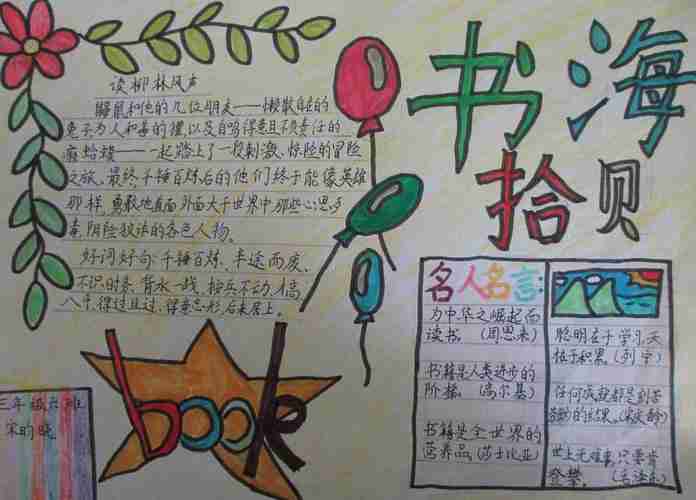 书海
拾贝
读柳林风声
鼹鼠和他的几位朋友——懒散自在的
兔子为人和善的獾,以及自鸣得意且不负责任的
癞蛤蟆——一起踏上了一段刺激、惊险的冒险
之旅。最终,千锤百炼后的他们终于能像英雄
那样,勇敢地直面外面大千世界中那些心思歹
毒,阴险狡诈的各色人物。
好词好句:千锤百炼、半途而废、
不识时务、背水一战、
八斗,得过且过、得意忘形、后来居上。
book
三年级六班
宋昀晓
名人名言:
为中华之崛起而
读书。(周恩来)
书籍是人类进步的
阶梯。(高尔基)
书籍是全世界的
营养品。(莎士比亚)
聪明在于学习,天
才在于积累。(列宁)
任何成就都是刻苦
劳动的结果。(宋庆龄)
世上无难事,只要肯
登攀。(毛泽东)